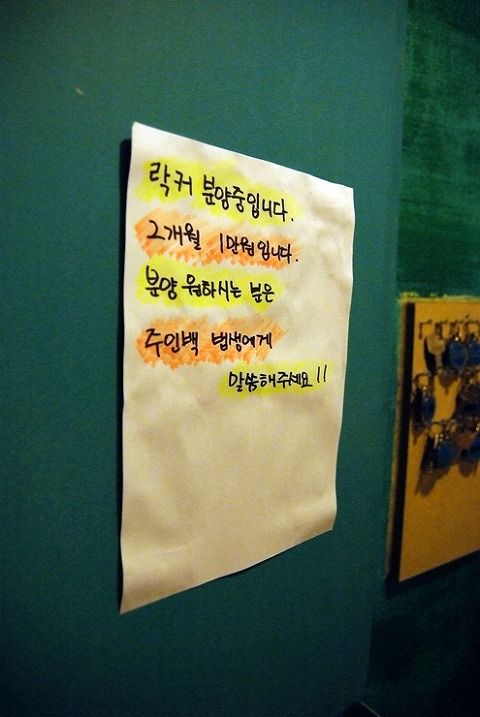 락커 분양중입니다.
2개월 1만원입니다.
분양 원하시는 분은
주인백 법생에게
말씀해주세요!!